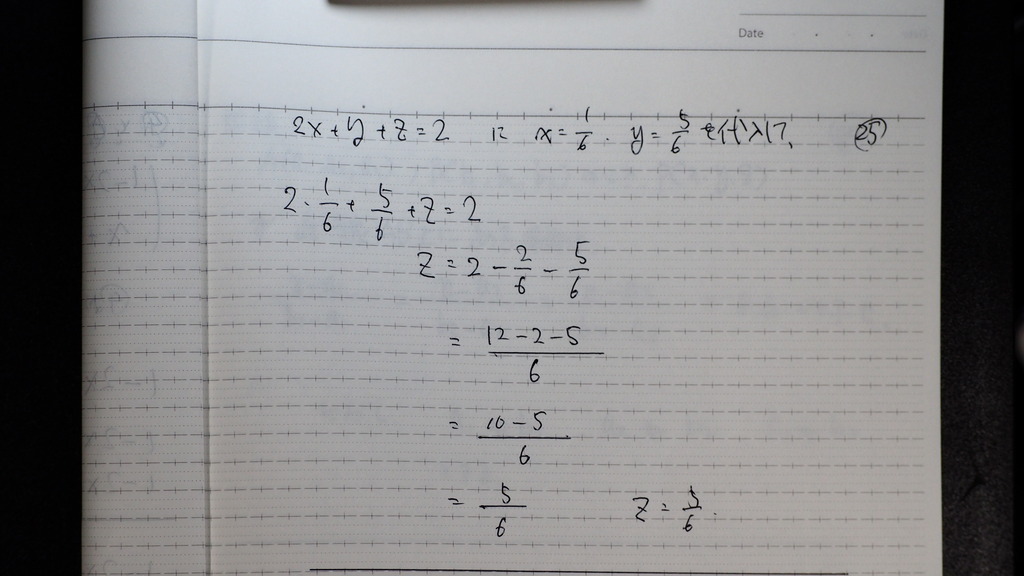 Date
2x+y+z=2 に x=1/6. y=5/6 を代入して、 ㉕
2・1/6+5/6+z=2
z=2-2/6-5/6
=(12-2-5)/6
=(10-5)/6
=5/6 z=5/6.